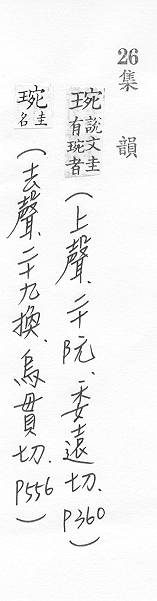 26集韻
琬 說文圭有琬者（上聲、二十阮、委遠切、P360）
琬 圭名（去聲、二十九換、烏貫切、P556）